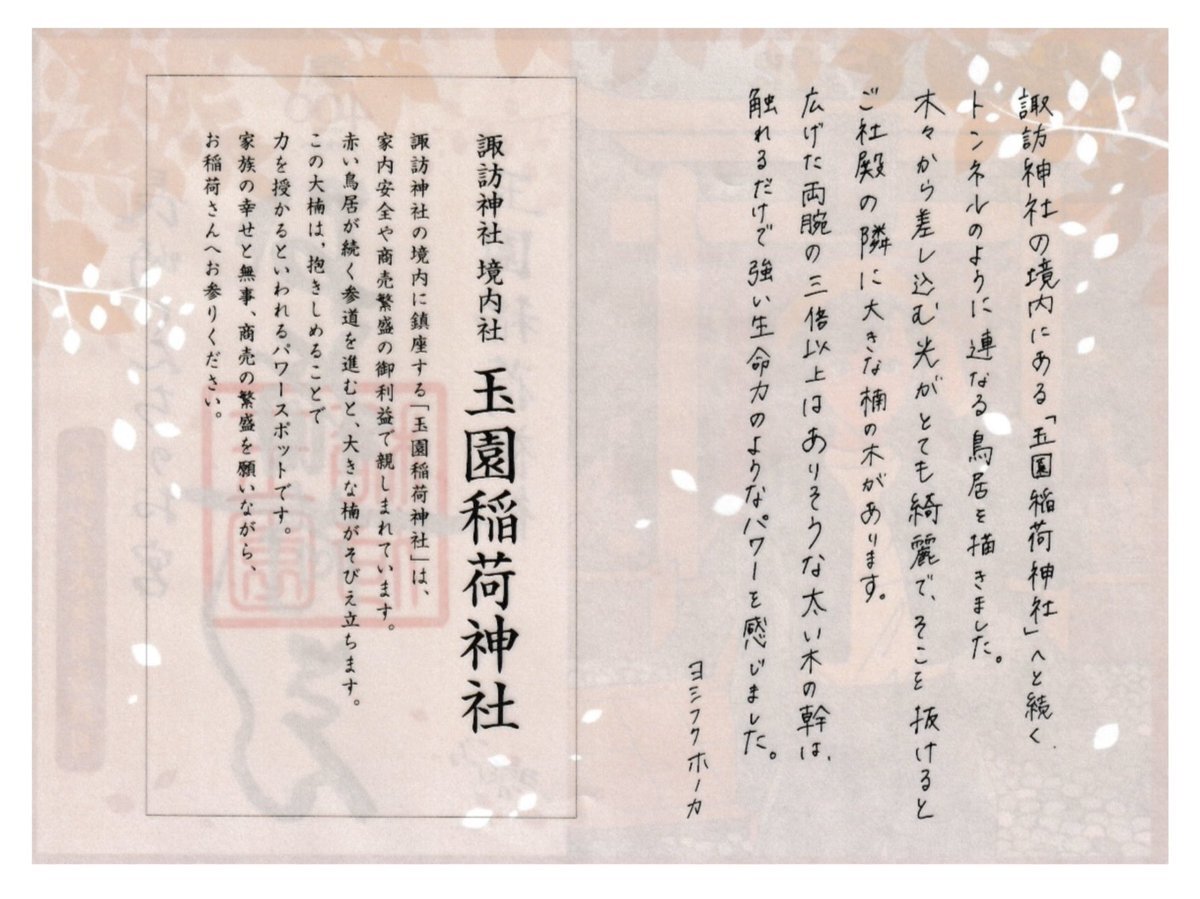 諏訪神社の境内にある「玉園稲荷神社」へと続く、
トンネルのように連なる鳥居を描きました。
木々から差し込む光がとても綺麗で、そこを抜けると
ご社殿の隣に大きな楠の木があります。
広げた両腕の三倍以上はありそうな太い木の幹は、
触れるだけで強い生命力のようなパワーを感じました。
ヨシフクホノカ
諏訪神社 境内社 玉園稲荷神社
諏訪神社の境内に鎮座する「玉園稲荷神社」は、
家内安全や商売繁盛の御利益で親しまれています。
赤い鳥居が続く参道を進むと、大きな楠がそびえ立ちます。
この大楠は、抱きしめることで
力を授かるといわれるパワースポットです。
家族の幸せと無事、商売の繁盛を願いながら、
お稲荷さんへお参りください。